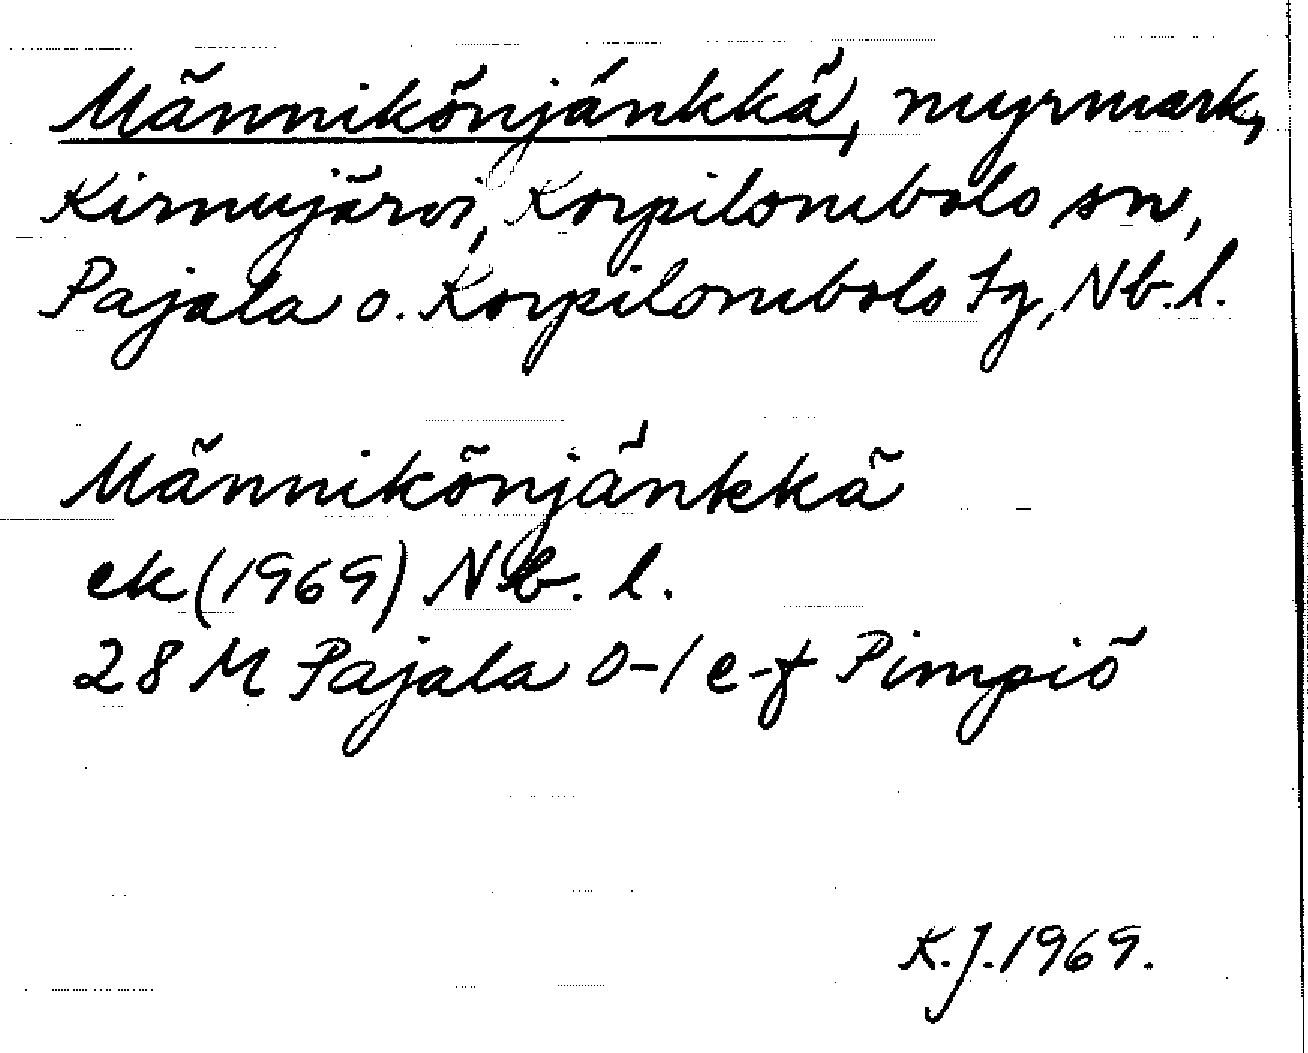 Männikönjänkkä, myrmark,
Kirnujärvi, Korpilombolo sn,
Pajala o. Korpilombolo tg, Nb.l.
Männikönjänkkä
ek (1969) Nb. l.
28 M Pajala 0-1 e-f Pimpiö
K.J. 1969.